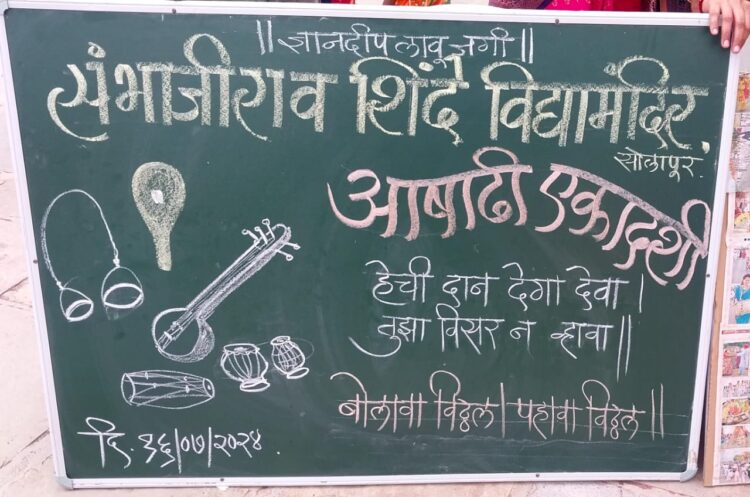 || ज्ञानदीप लावू जगी ||
संभाजीराव शिंदे विद्यामंदिर,
सोलापूर.
आषाढी एकादशी
हेची दान देगा देवा |
तुझा विसर न व्हावा ||
बोलावा विठ्ठल | पहावा विठ्ठल ||
दि. १६/०७/२०२४.